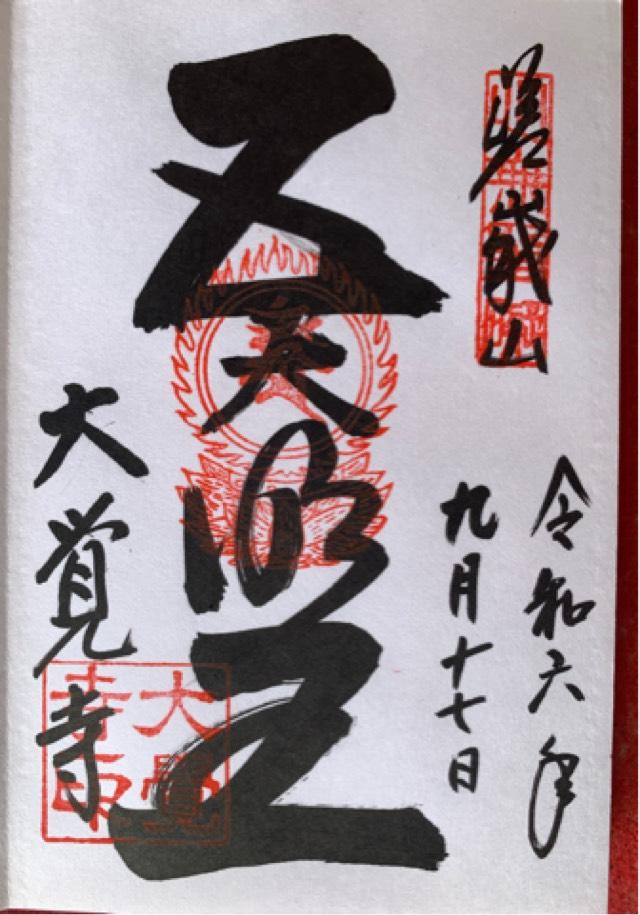 嵯峨山
令和六年
九月十七日
五大明王
大覚寺
大覺
寺印